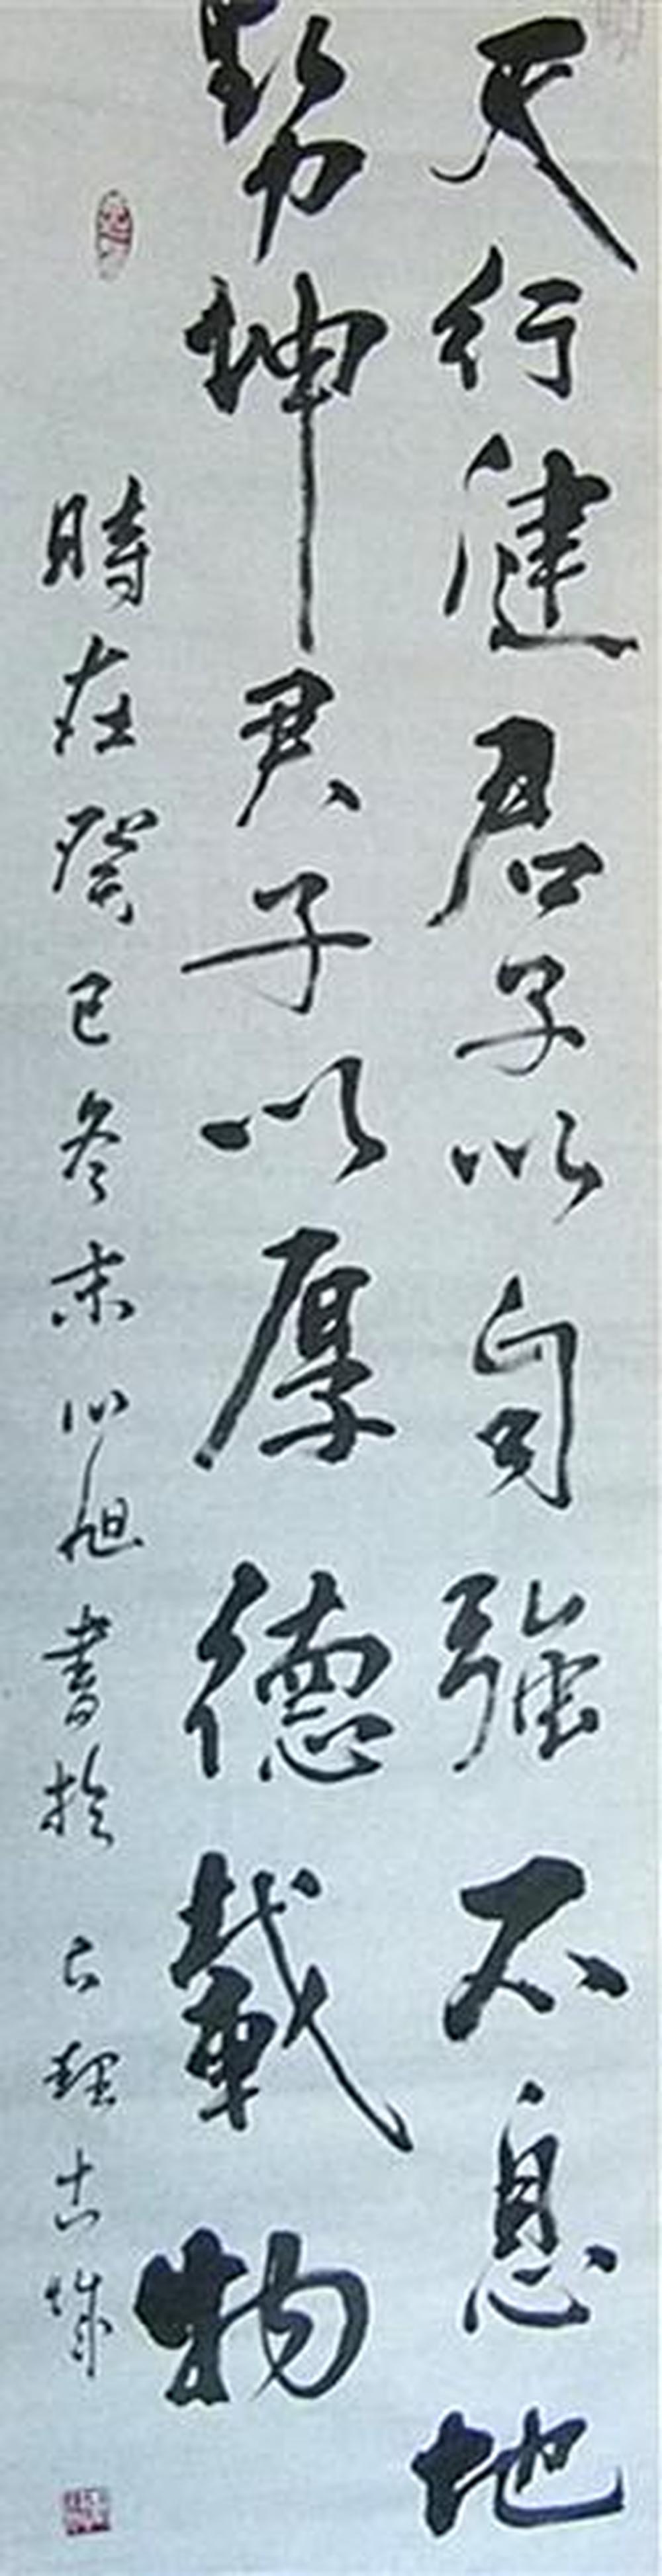 天行健君子以自強不息地
勢坤君子以厚德載物
時在癸巳冬末 旭書於